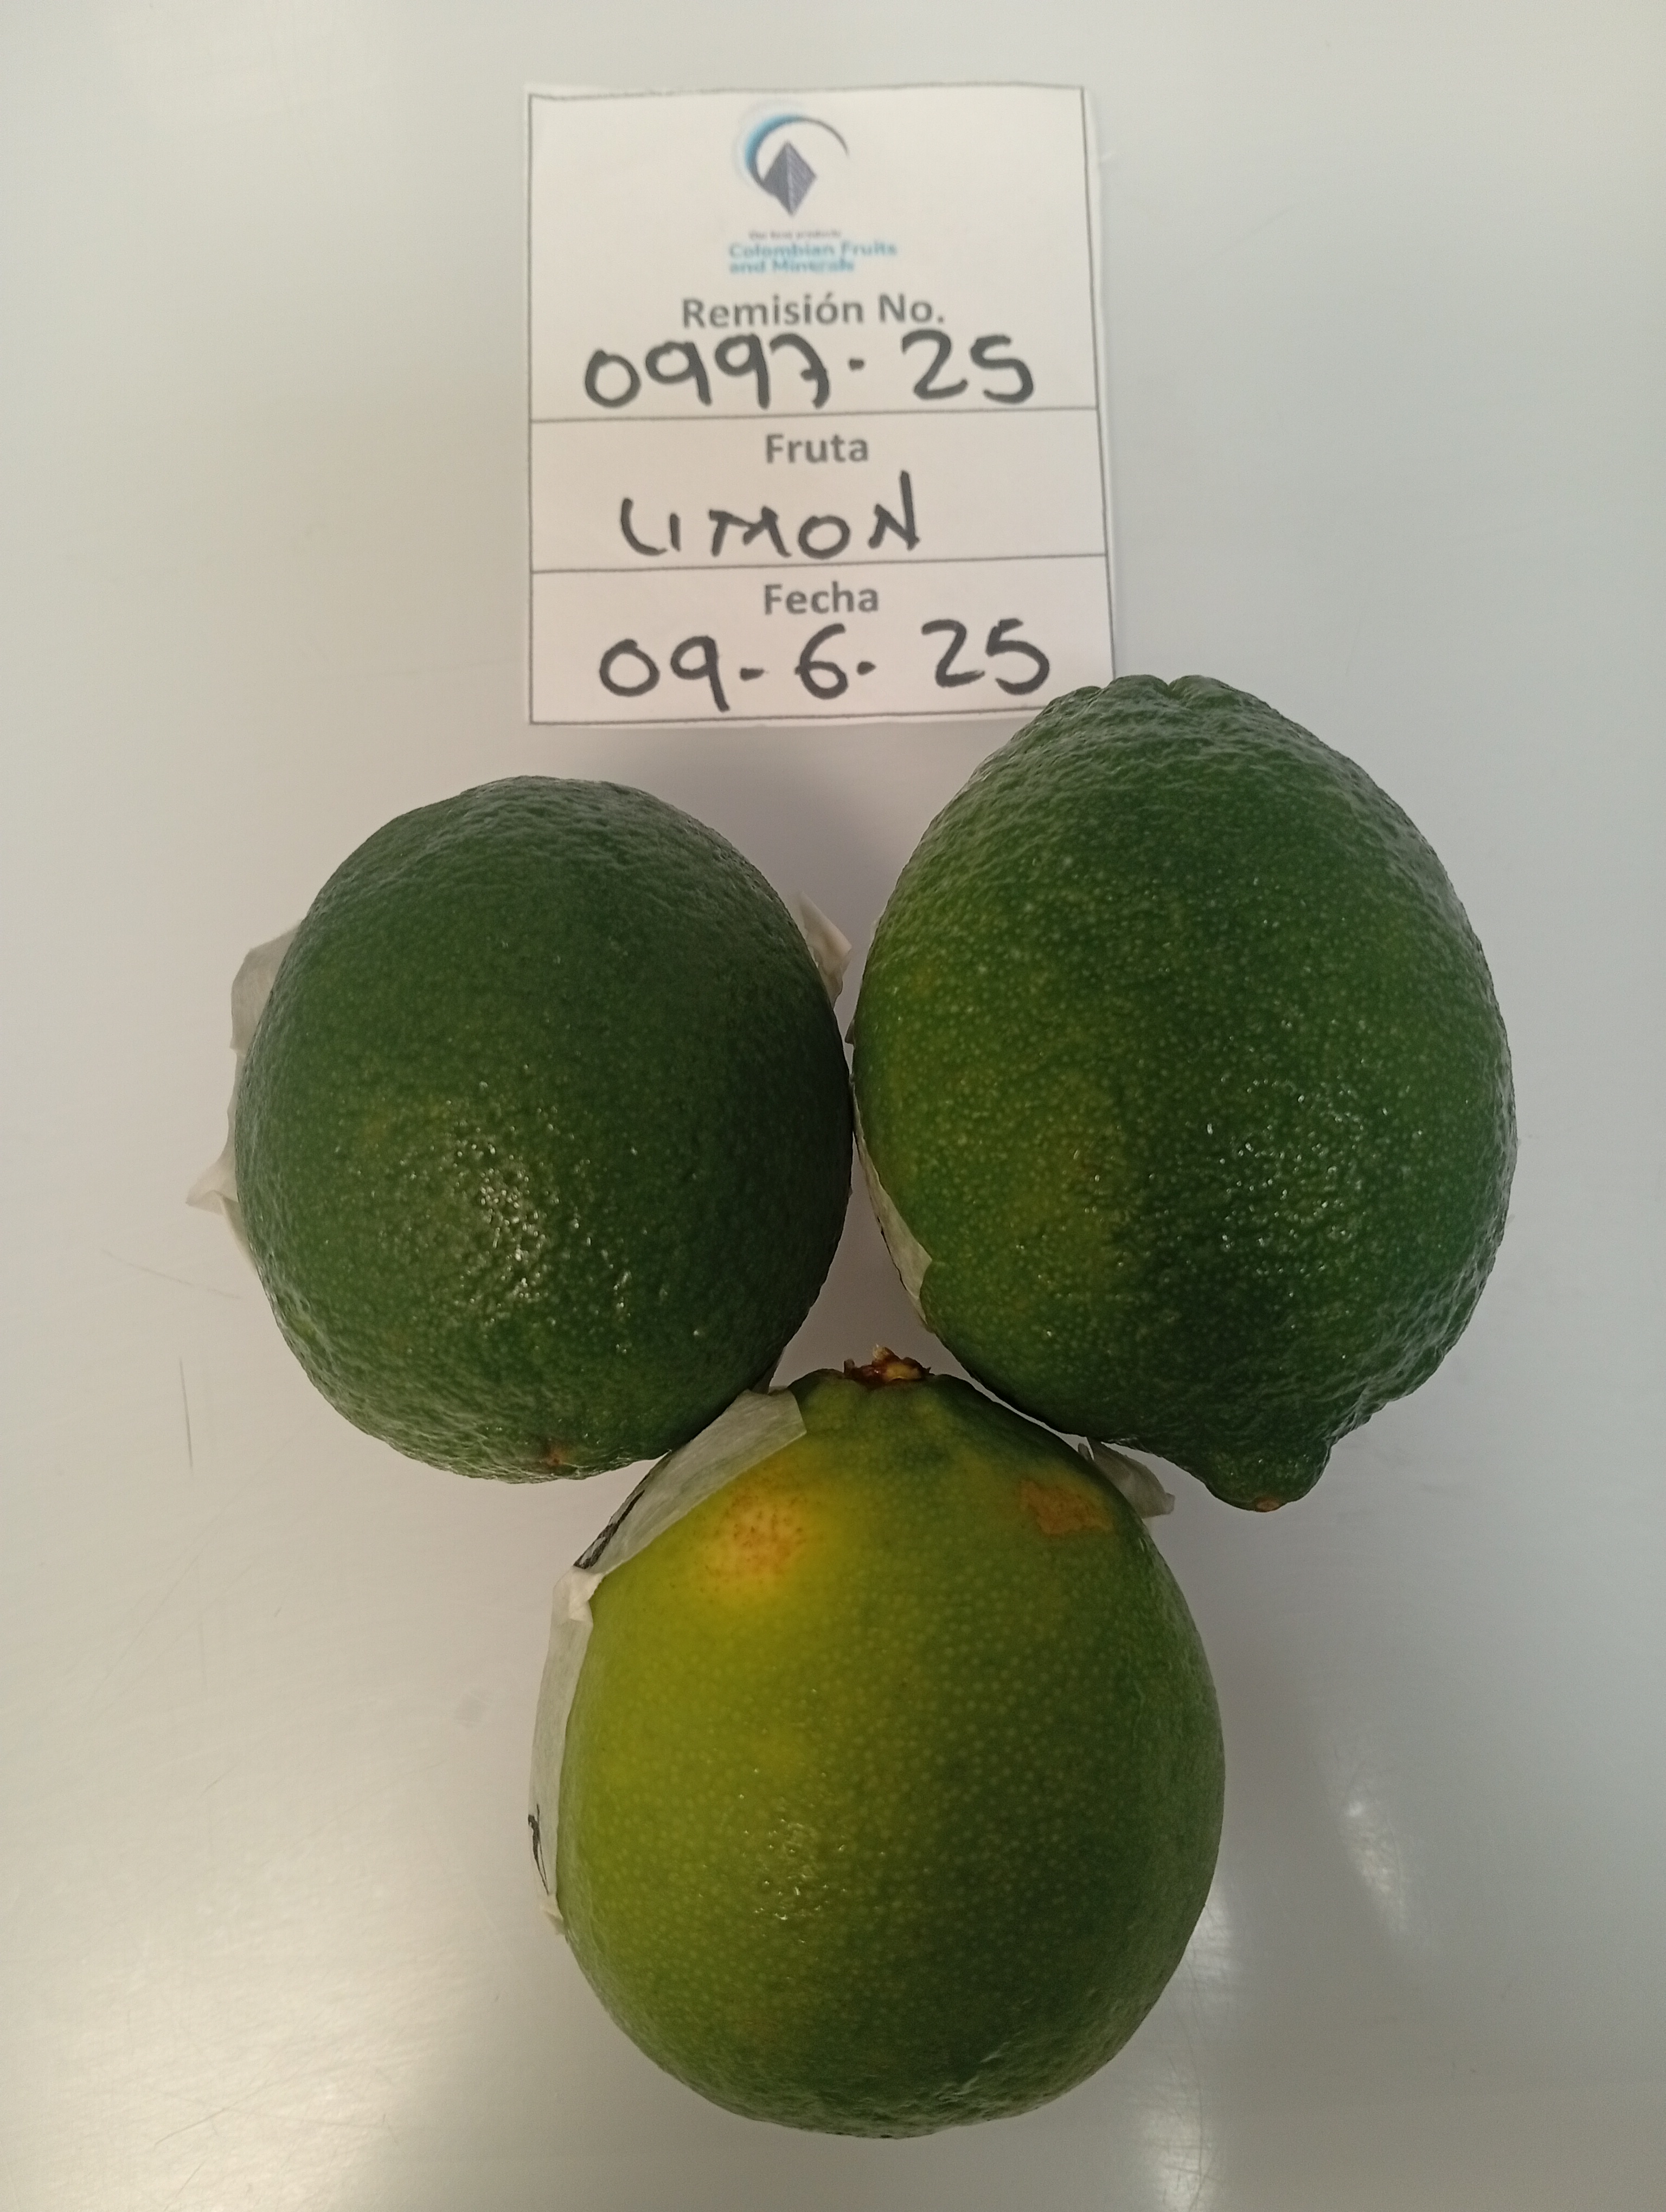 Colombian Fruits
and Minerals
Remisión No.
0997-25
Fruta
LIMON
Fecha
09-6-25